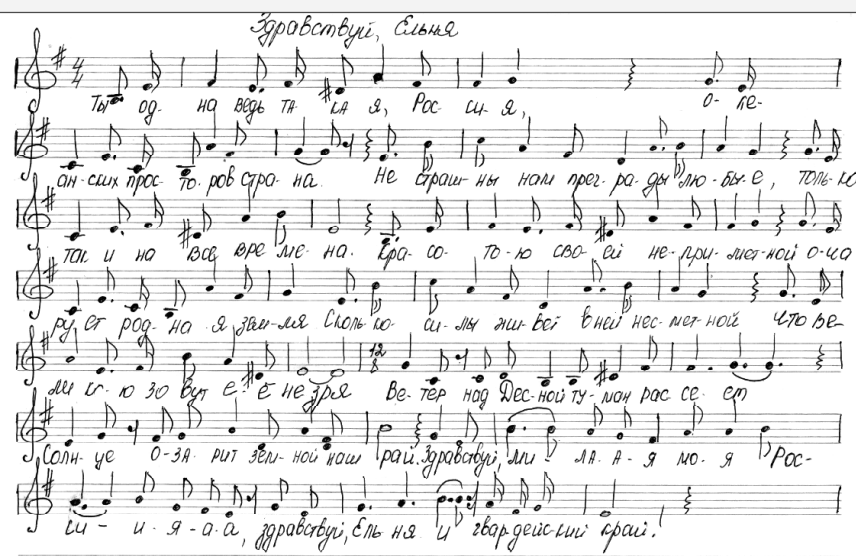 Здравствуй, Ельня
4 4 Ты од- на ведь та- ка я, Рос- си- я, о- ке-
ан-ских прос- то-ров стра- на. не страш- ны нам прег-ра- ды лю- бы-е, толь-ко
так и на все вре ме- на. Кра- со- то- ю сво- ей не- при- мет-ной о-ча
ру- ет род- на- я зем-ля Сколь ко- си- лы жи- вёт в ней нес- мет- ной что ве-
ли к- ю зо вут е- ё не зря 12 8 Ве- тер над Дес-ной ту- ман рас се- ет
Солн- це о-за- рит зем- ной наш рай. Здравствуй, ми- ла- а- я мо- я Рос-
си- и- я-а-а, здравствуй, Ель ня и гвардейский край!